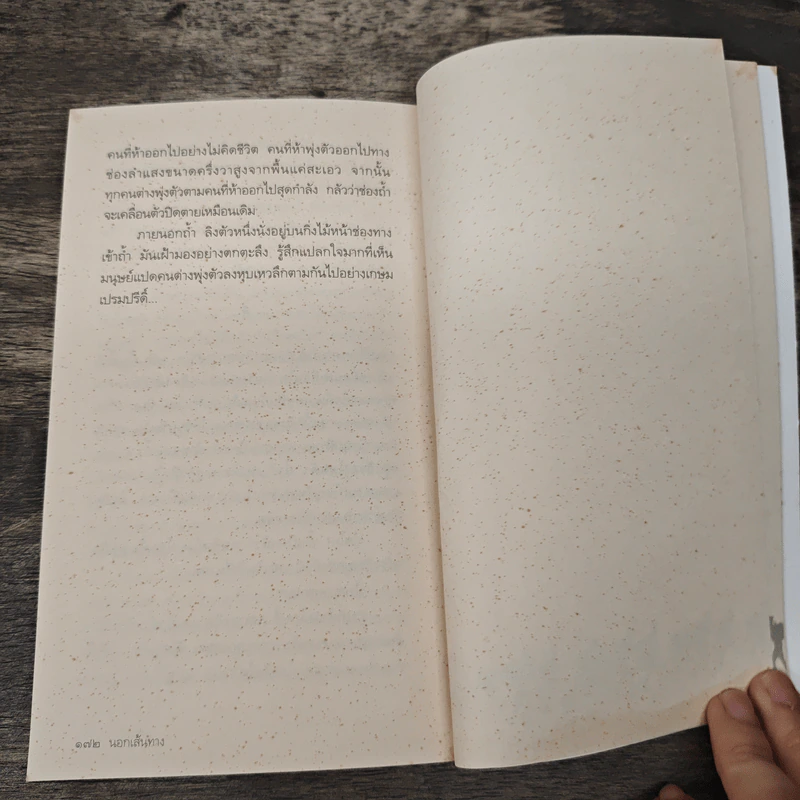 คนที่ห้าออกไปอย่างไม่คิดชีวิต คนที่ห้าพุ่งตัวออกไปทาง
ช่องลำแสงขนาดครึ่งวาสูงจากพื้นแค่สะเอว จากนั้น
ทุกคนต่างพุ่งตัวตามคนที่ห้าออกไปสุดกำลัง กลัวว่าช่องถ้ำ
จะเคลื่อนตัวปิดตายเหมือนเดิม
ภายนอกถ้ำ ลิงตัวหนึ่งนั่งอยู่บนกิ่งไม้หน้าช่องทาง
เข้าถ้ำ มันเฝ้ามองอย่างตกตะลึง รู้สึกแปลกใจมากที่เห็น
มนุษย์แปดคนต่างพุ่งตัวลงหุบเหวลึกตามกันไปอย่างเกษม
เปรมปรีดิ์...
๑๗๒ นอกเส้นทาง